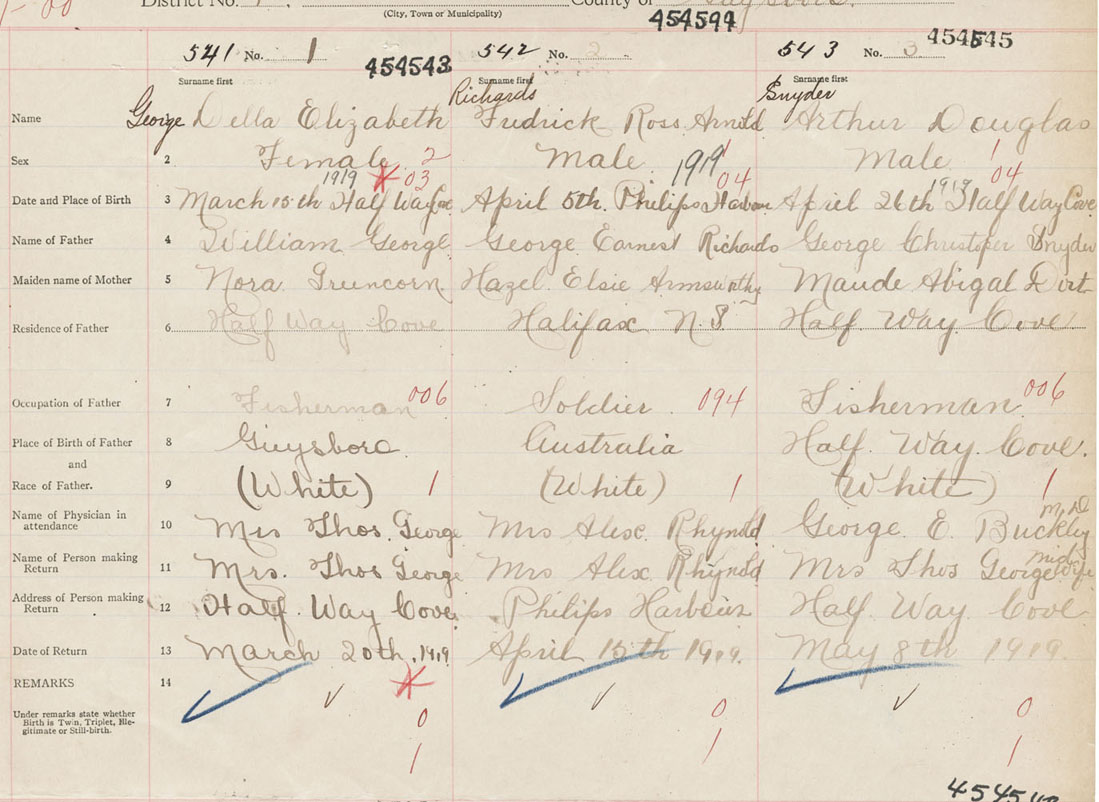 District No. 1. County of Guysboro.
(City, Town or Municipality)
454544
541 No. 1 454543 542 No. 2 543 No. 3 454545
Surname first Surname first Surname first
Richards Snyder
Name George Della Elizabeth Fredrick Ross Arnold Arthur Douglas
Sex 2 Female 2 Male 1 Male 1
1919 03 1919 04 1919 04
Date and Place of Birth 3 March 15th Half Way Cove April 5th. Philips Harbour April 26th Half Way Cove
Name of Father 4 William George George Earnest Richards George Christoper Snyder
Maiden name of Mother 5 Nora Gruncorn Hazel. Elsie Armsworthy Maude Abigal Dort
Residence of Father 6 Half Way Cove Halifax N. S Half. Way. Cove.
Occupation of Father 7 Fisherman 006 Soldier 094 Fisherman 006
Place of Birth of Father 8 Guysboro. Australia Half. Way. Cove.
and
Race of Father. 9 (White) 1 (White) 1 (White) 1
Name of Physician in attendance 10 Mrs Thos. George Mrs Alex. Rhynold George. E. Buckley M.D
Name of Person making Return 11 Mrs. Thos George Mrs Alex. Rhynold Mrs Thos George Midwife
Address of Person making Return 12 Half. Way Cove. Philips Harbour Half. Way Cove
Date of Return 13 March 20th, 1919. April 15th 1919. May 8th 1919.
REMARKS 14
Under remarks state whether
Birth is Twin, Triplet, Ille-
gitimate or Still-birth.
0 0 0
1 1 1